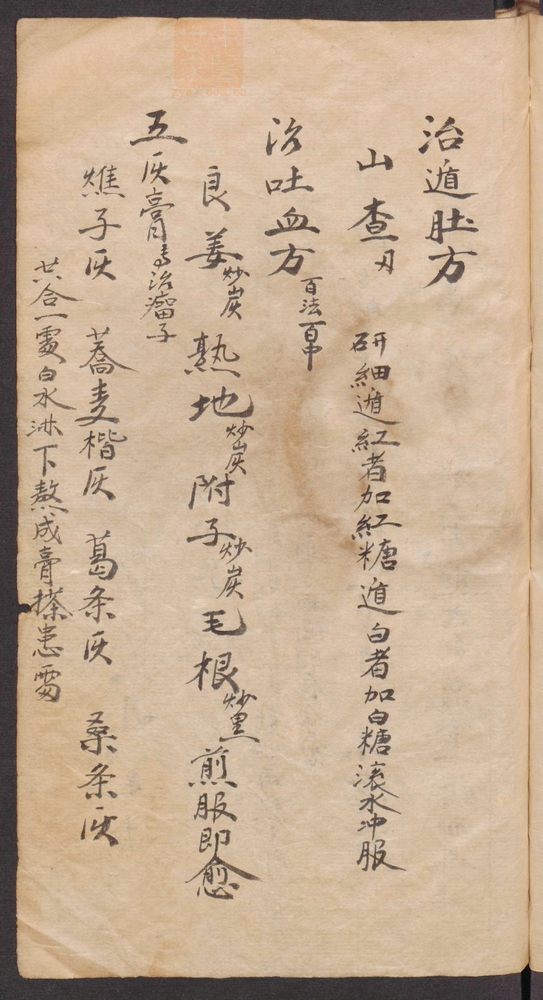 治遁肚方
山查刃
研細遁紅者加紅糖遁白者加白糖滚水冲服
治吐血方 百法百中
良姜炒炭 熟地炒炭 附子炒炭 毛根炒黑 煎服即愈
五灰膏专治瘤子
燋子灰 蕎麦楷灰 葛条灰 桑条灰
共合一處白水淋下熬成膏搽患處